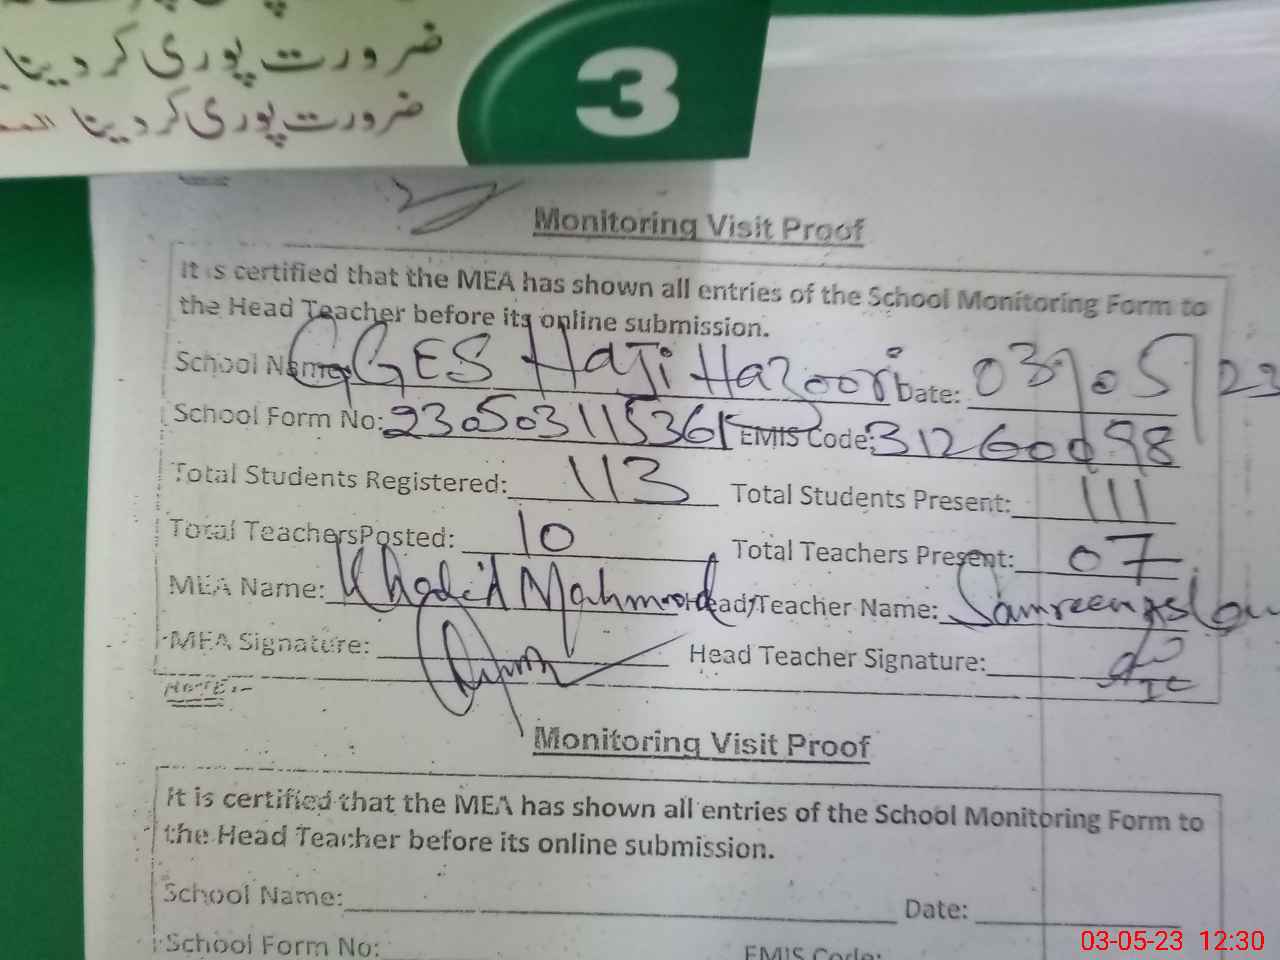 ضرورت پوری کر دینا
ضرورت پوری کر دینا
3
Monitoring Visit Proof
It is certified that the MEA has shown all entries of the School Monitoring Form to
the Head Teacher before its online submission.
School Name: GGES Haji Hazoor Date: 03/05/23
School Form No: 230503115361 EMIS Code: 31260098
Total Students Registered: 113 Total Students Present: 111
Total TeachersPosted: 10 Total Teachers Present: 07
MEA Name: Khalid Mahmood Head/Teacher Name: Samreen Aslam
MEA Signature: Head Teacher Signature:
NOTE:-
Monitoring Visit Proof
It is certified that the MEA has shown all entries of the School Monitoring Form to
the Head Teacher before its online submission.
School Name: Date:
School Form No: EMIS Code:
03-05-23 12:30